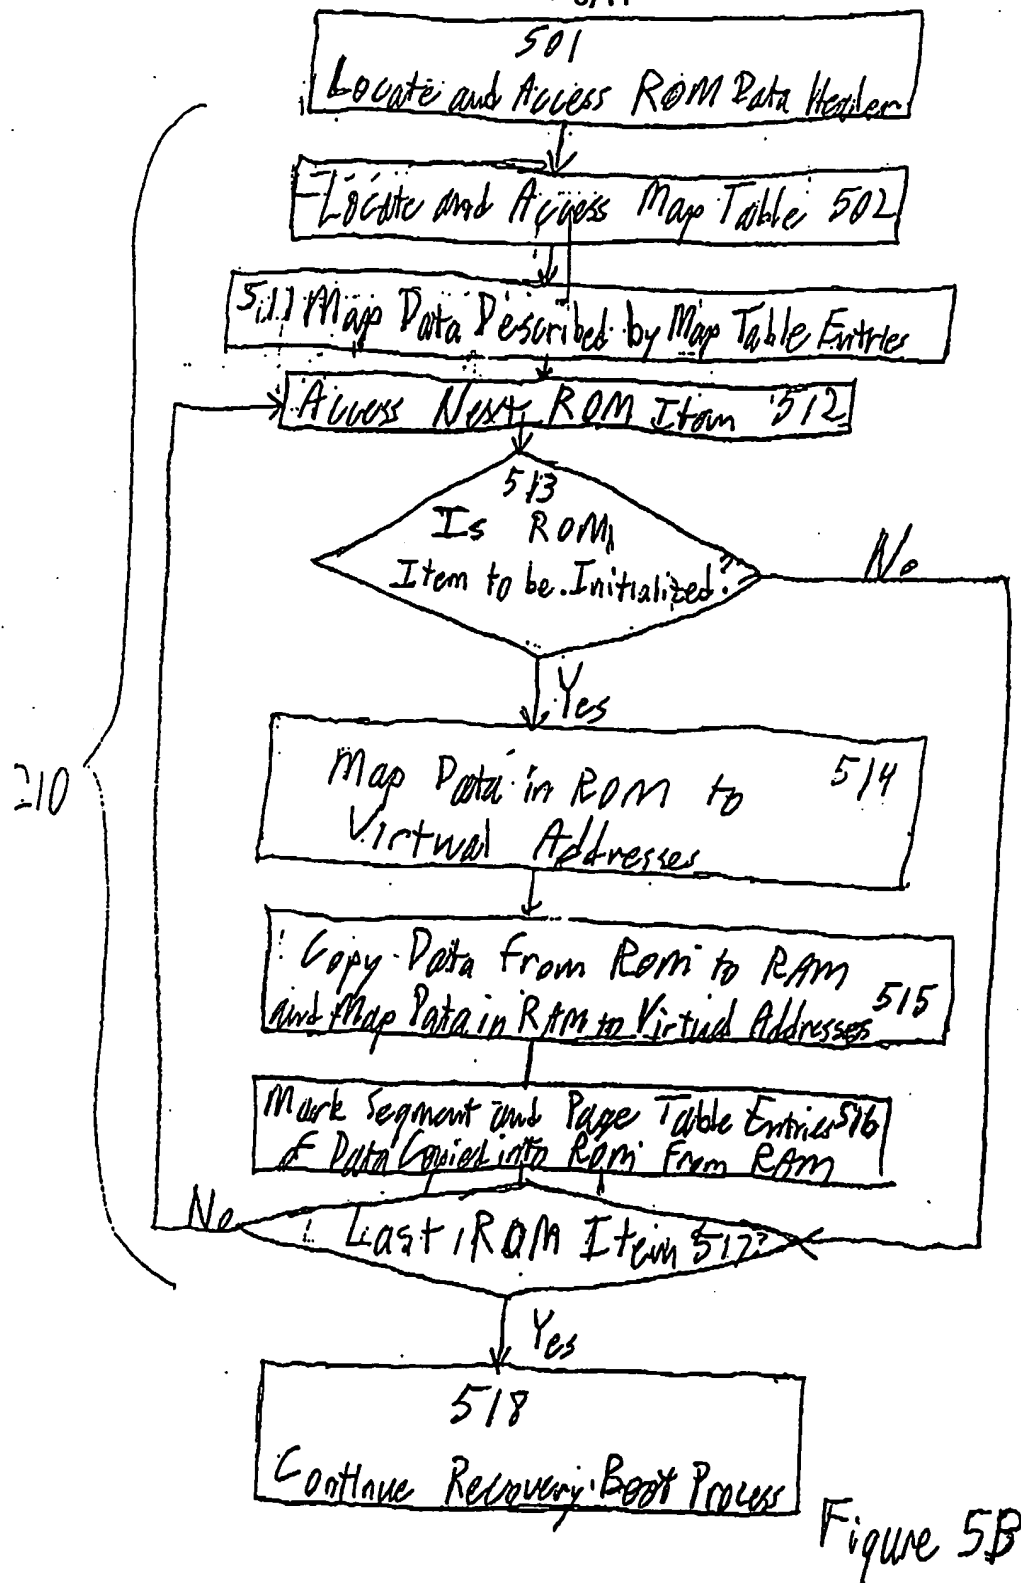 501
Locate and Access ROM Data Header
Locate and Access Map Table 502
511 Map Data Described by Map Table Entries
Access Next ROM Item 512
513
Is ROM
Item to be Initialized?
No
Yes
Map Data in ROM to 514
Virtual Addresses
210
Copy Data From ROM to RAM
and Map Data in RAM to Virtual Addresses 515
Mark Segment and Page Table Entries 516
of Data Copied into ROM From RAM
No
Last ROM Item 517?
Yes
518
Continue Recovery Boot Process
Figure 5B